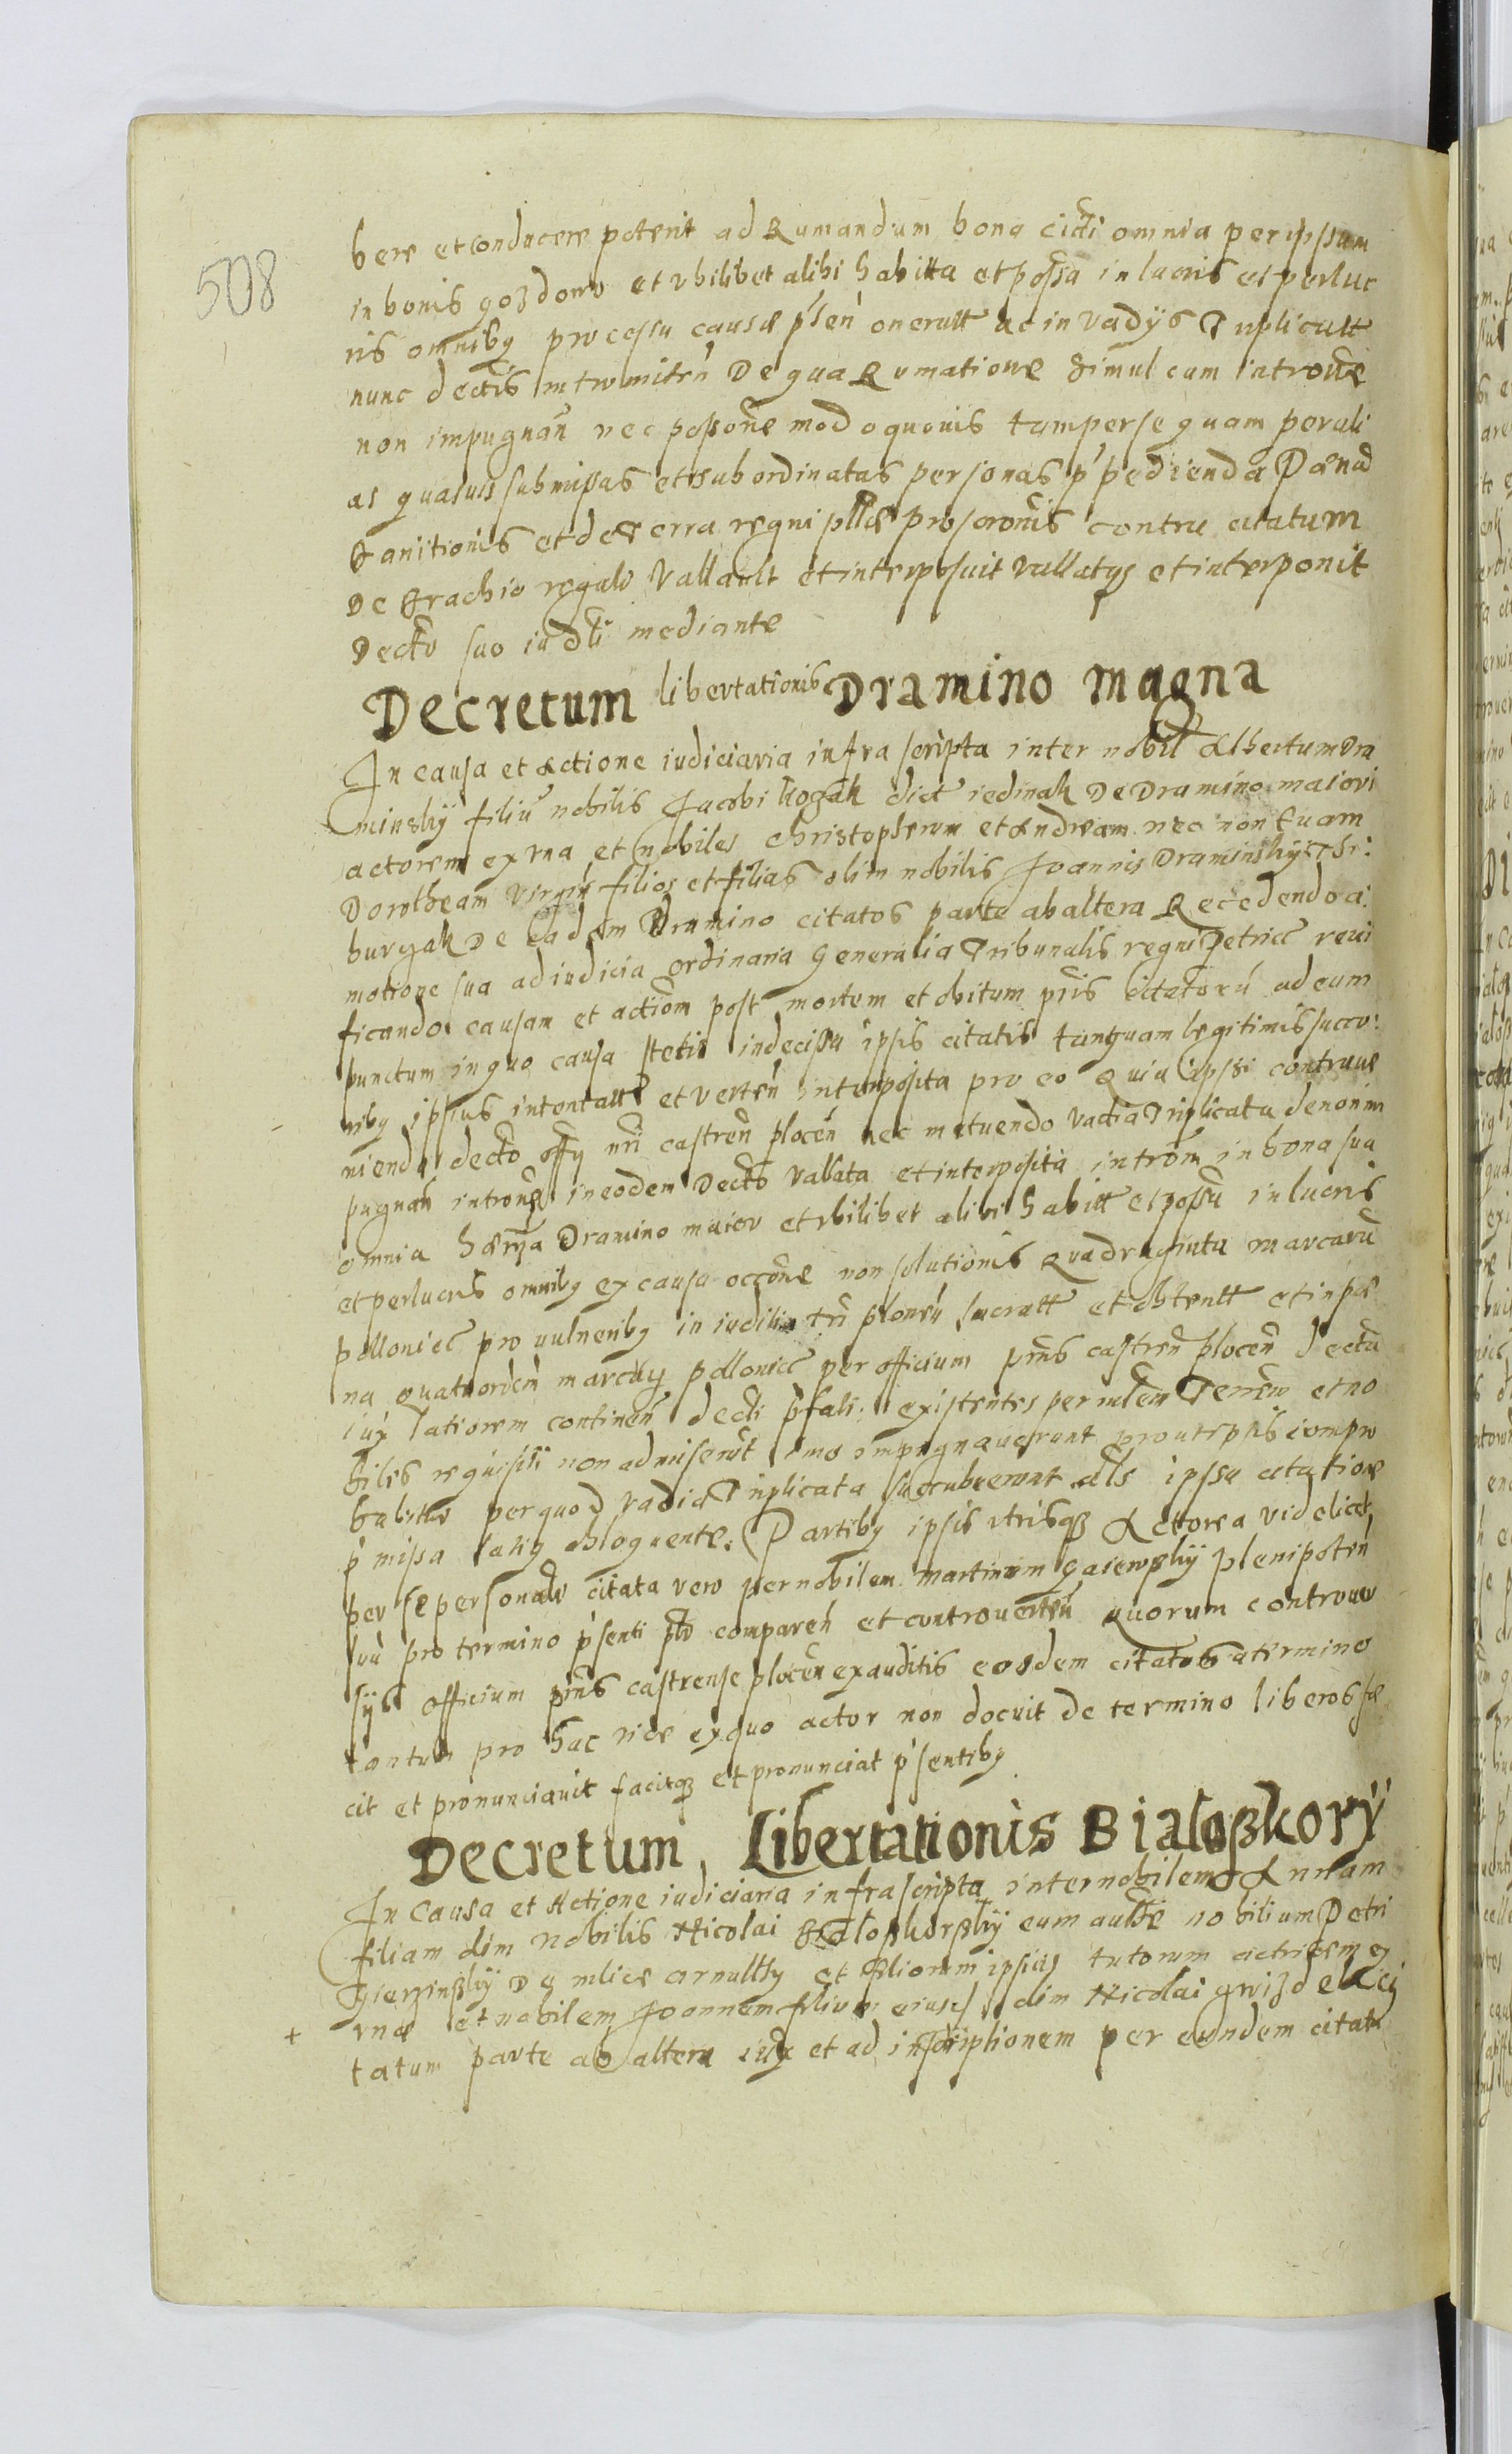 508
bere et conducere poterit ad Rumandum bona citti omnia per ipsum
in bonis gozdowo et vbilibet alibi habitta et possa in lucris et perluc
ris omnibq processu causæ pñtn onerattæ ac in vadÿs Triplicatt
nunc dectis intromitten De qua Rumatione simul cum introne
non impugnan nec possone modo quouis tam per se quam per ali
as quasuis submissas et subordinatas personas ppedienda Poena
Banitionis et de terra regni plle proscronis contra citatum
De brachio regali Vallauit et interposuit vallatqs et interponit
Decto suo iudli mediante
Decretum libertationis Dramino magna
In causa et actione iudiciaria infra scripta inter nobil Albertum Dra
minsky filiu nobilis Jacobi kozak dict iedinak De Dramino maiori
actorem ex vna et nobiles christopherum et Andream nec non Euam
Dorotheam virgin filios et filias olim nobilis Joannis Draminsky Thi:
burzak De eadem Dramino citatos parte ab altera Recedendo a:
motione sua ad iudicia ordinaria Generalia Tribunalis regni Petricc reui
ficando causam et actiom post mortem et obitum pris citatorú ad eum
punctum in quo causa stetit indecissa ipsis citatis tanquam legitimis succo:
ribq ipsius intentattæ et verten interposita pro eo Quia ipssi contraue
niendo decto offy nri castren plocen nec metuendo vadia Triplicata denonim
pugnan introne in eodem Decto vallata et interposita introm in bona sua
omnia hærna Dramino maior et vbilibet alibi habitt et possa in lucris
et perlucris omnibq ex causa occone non solutionis Quadraginta marcarú
pollonicc pro vulneribq in iudicio tri plonen lucratt et obtentt et in poe
na quatuordecim marcarq pollonicc per officium pñs castren plocen dectú
iux latiorem continen decti pfati: existentes per ministm Terrem et no
biles requisiti non admiserut imo impugnauerunt prout ipsis compro
babitur per quod vadia Triplicata succubuerunt als ipssa citatione
p missa latiq obloquente. Partibq ipsis vtrisqz Actorea videlicet
per se personalr citata vero per nobilem martinum gaiewsky plenipoten
suú pro termino pñsenti pto comparen et controuerten quorum controuer
sÿs officium pñs castrense plocen exauditis eosdem citatos a termino
tantum pro hac vice ex quo actor non docuit de termino liberos fe
cit et pronunciauit facitqz et pronunciat psentibq
Decretum Libertationis Białoßkorÿ
In Causa et Actione iudiciaria infrascripta inter nobilem Annam
filiam olim nobilis Nicolai Białoskorsky cum autte nobilium Petri
+ vnæ et nobilem Joannem filium eiusd olim Nicolai gwizd elci ci
tatum parte ab altera iux et ad inscriptionem per eundem citat